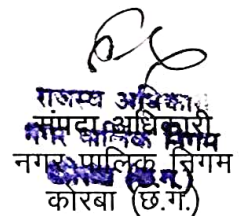 राजस्व अधिकारी
संपदा अधिकारी
नगर पालिक निगम
नगर पालिक निगम
कोरबा (छ.ग.)